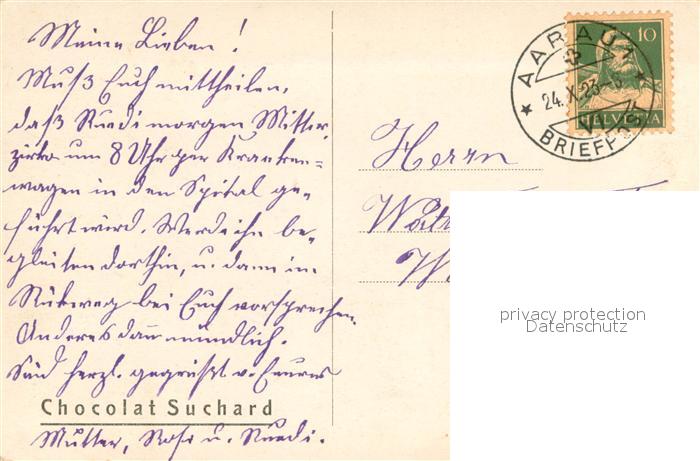 Meine Lieben!
Muß Euch mittheilen,
daß Ruedi morgen Mitter,
zirka um 8 Uhr per Kranken=
wagen in den Spital ge-
führt wird. Werde ihn be-
gleiten dorthin, u. dann im
Rükweg bei Euch vorsprechen.
Anderes dann mündlich.
Seid herzl. gegrüßt v. Eurer
Chocolat Suchard
Mutter, Rosi u. Ruedi.
AARAU 1
24.X.23
BRIEFPOST
10
HELVETIA
Herrn
privacy protection
Datenschutz